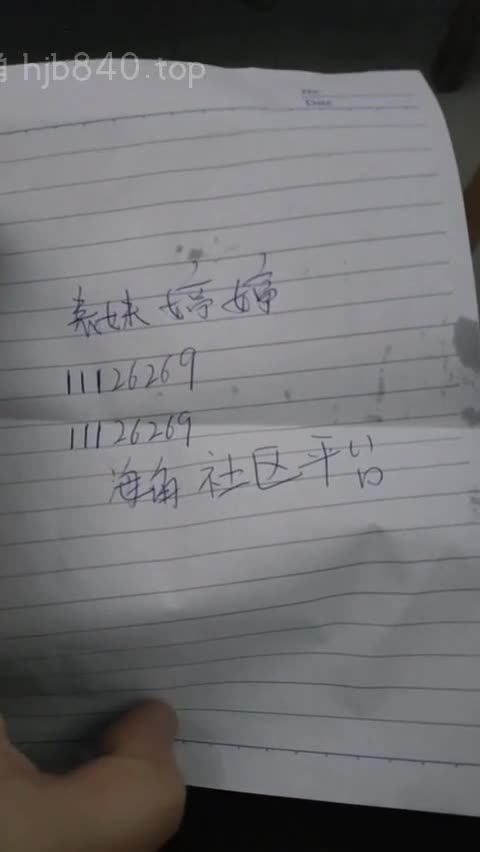 角 hjb840.top
No.
Date
表妹婷婷
11126269
11126269
海角社区平台